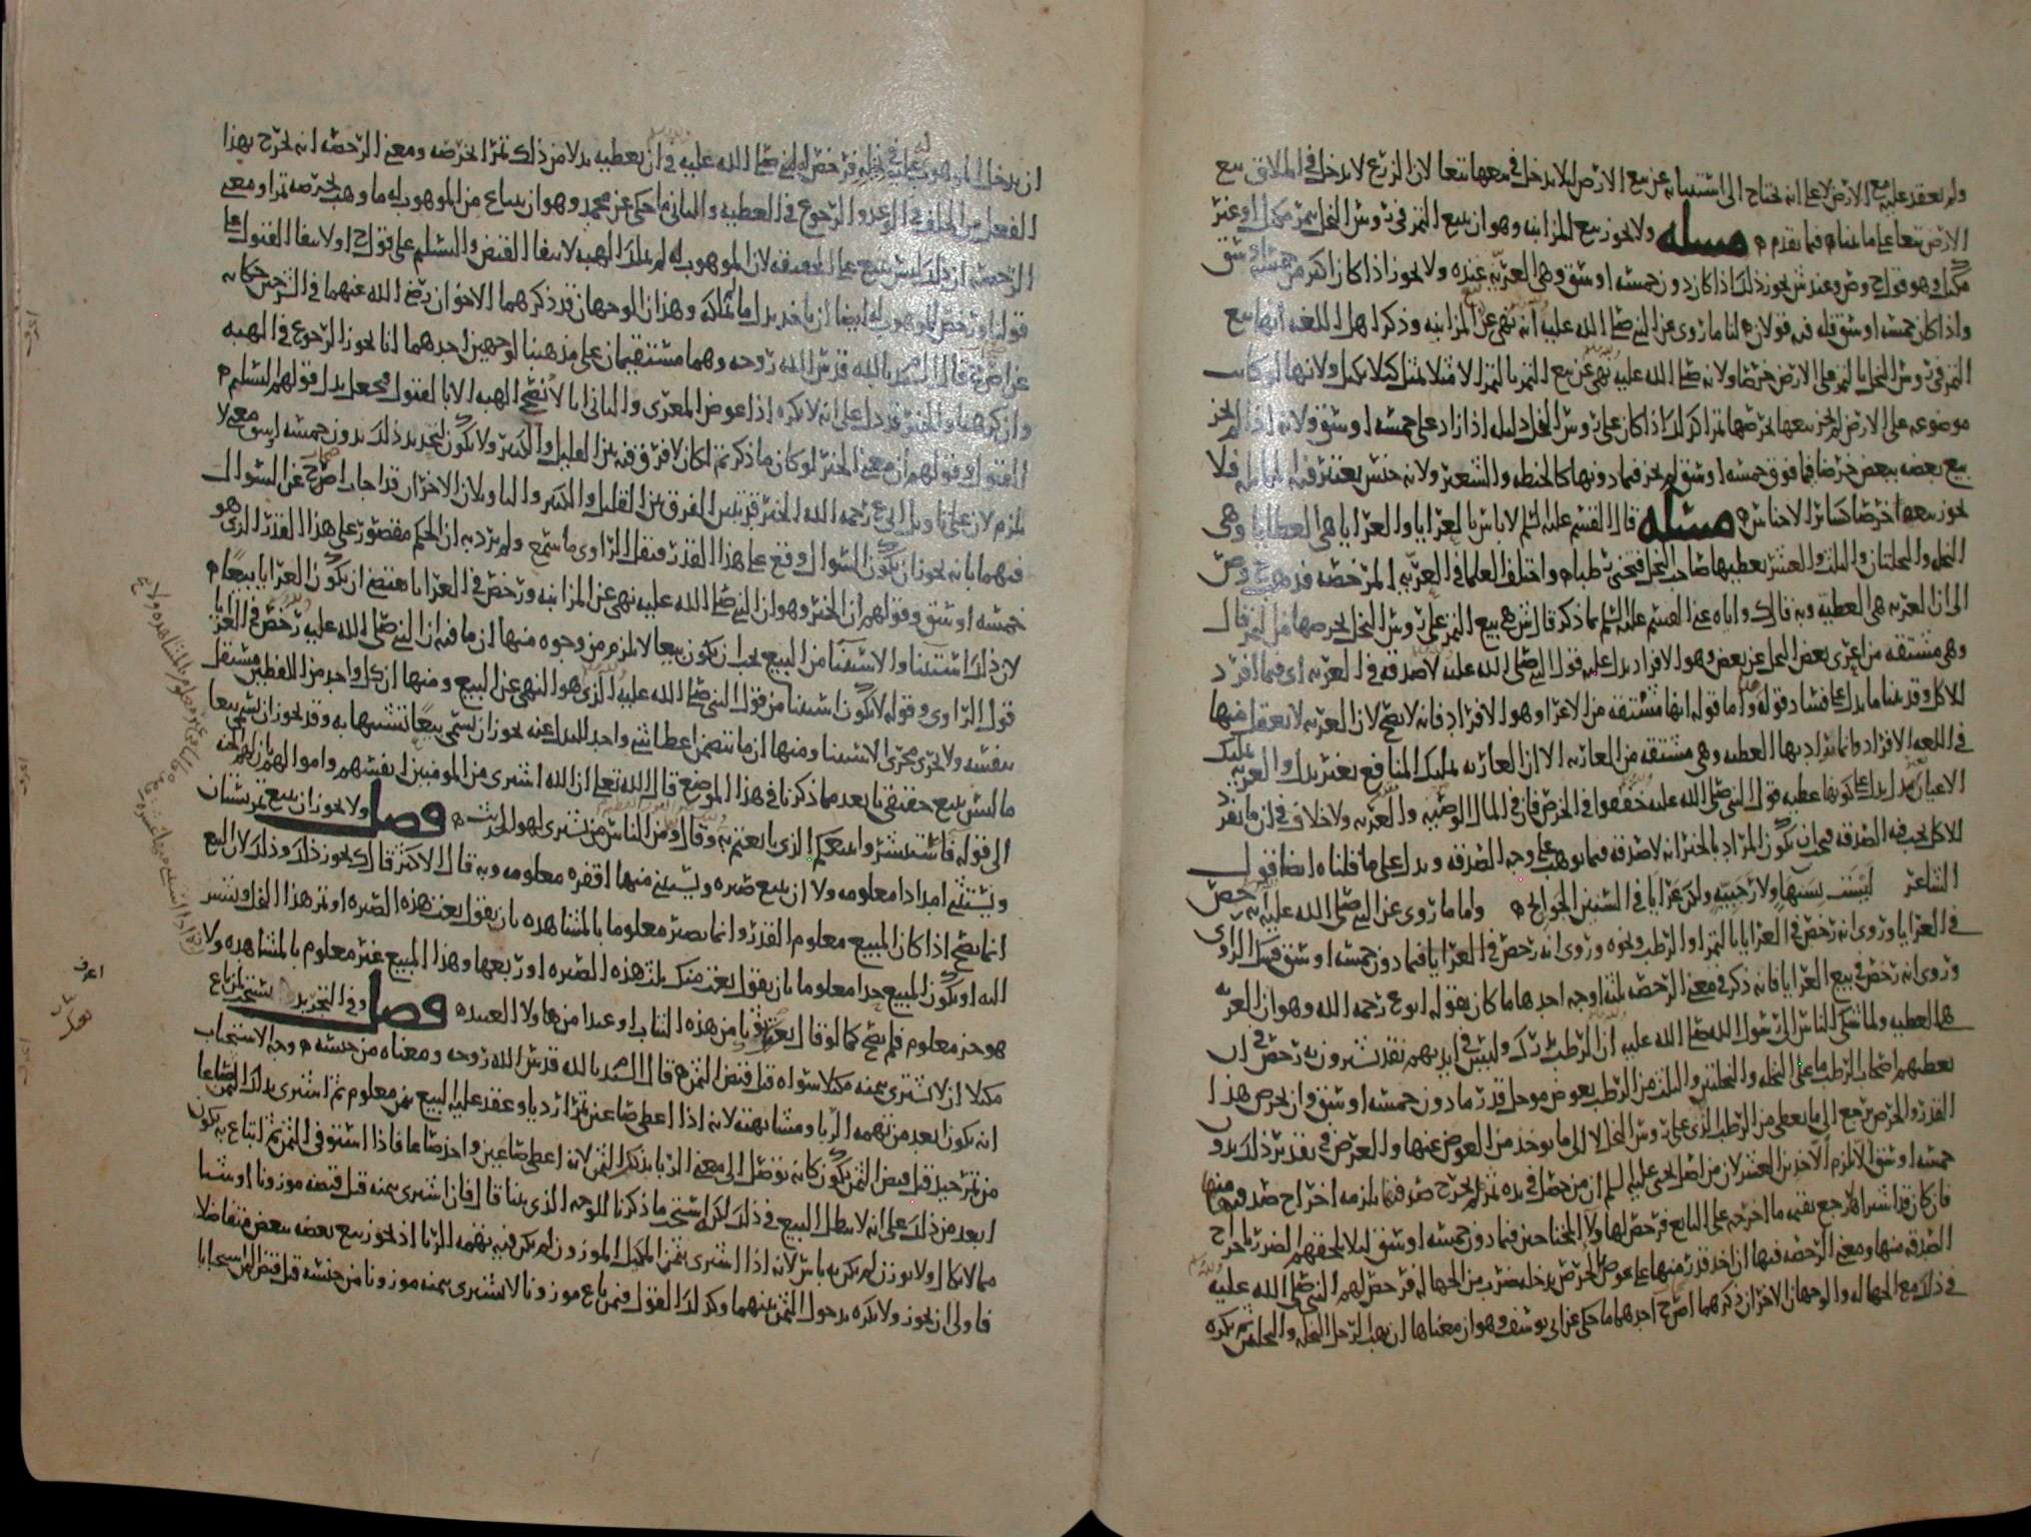 ولم يعقد عليه مع الارض لا على انه يحتاج الى استثنائه عن بيع الارض لئلا يدخل في بيعها تبعا لان الزرع لا يدخل في اطلاق بيع
الارض تبعا على ما بيناه فيما تقدم مسله ولا يجوز بيع المزابنه وهو ان يبيع التمر في روس النخل بتمر مكيل او غير
مكيل وهو قول ح وص وعند ش يجوز ذلك اذا كان دون خمسه اوسق وهي العريه عنده ولا يجوز اذا كان اكثر من خمسه اوسق
واذا كان خمسه اوسق فله فيه قولان لنا ما روى عن النبي صلى الله عليه انه نهى عن المزابنه وذكر اهل اللغه انها بيع
التمر في روس النخل بالتمر على الارض خرصا ولانه صلى الله عليه نهى عن بيع التمر بالتمر الا مثلا بمثل كيلا بكيل ولانها لو كانت
موضوعه على الارض لم يجز بيعها بخرصها تمرا كذلك اذا كان على روس النخل دليله اذا زاد على خمسه اوسق ولانه اذا لم يجز
بيع بعضه ببعض خرصا فيما فوق خمسه اوسق لم يجز فيما دونها كالحنطه والشعير ولانه جنس يعتبر فيه المماثله فلا
يجوز بيعها خرصا كسائر الاجناس مسئله قال القسم عليه السلم لا باس بالعرايا والعرايا هي العطايا وهي
النخله والنخلتان والثلث والعشر يعطيها صاحب النخل فيجتنى رطبا واختلف العلما في العريه المرخصه فذهب ح وص
الى ان العريه هي العطيه وبه قال ك واياه عنى القسم عليه السلم بما ذكر قال ش هي بيع التمر على روس النخل بخرصها من التمر قال
وهي مشتقه من اعرى بعض النخل عن بعض وهو الافراد يدل عليه قول النبي صلى الله عليه لا صدقه في العريه اي فيما افرد
للاكل وقد بينا ما يدل على فساد قوله واما قوله انها مشتقه من الاعرا وهو الافراد فانه لا يصح لان العريه لا يعقل منها
في اللغه الافراد وانما يراد بها العطيه وهي مشتقه من العاريه الا ان العاريه تمليك المنافع بغير بدل والعريه تمليك
الاعيان بغير بدل يدل على كونها عطيه قول النبي صلى الله عليه خففوا في الخرص فان في المال الوصيه والعريه ولا خلاف في ان ما يفرد
للاكل يجب فيه الصدقه فيجب ان يكون المراد بالخبر انه لا صدقه فيما يوهب على وجه الصدقه ويدل على ما قلناه ايضا قول
الشاعر ليست بسنهاء ولا رجبيه ولكن عرايا في السنين الجوايح واما ما روى عن النبي صلى الله عليه انه رخص
في العرايا وروى انه رخص في العرايا بالتمر او الرطب ونحوه وروى انه رخص في العرايا فيما دون خمسه اوسق فشك الراوي
وروى انه رخص في بيع العرايا فانه ذكر في معنى الرخصه ثلثه اوجه احدها ما كان يقوله ابو ع رحمه الله وهو ان العريه
هي العطيه ولما شكى الناس الى رسول الله صلى الله عليه ان الرطب يدرك وليس في ايديهم نقد يشترون به رخص في ان
يعطيهم اصحاب الرطب ما على النخله والنخلتين والثلث من الرطب بعوض موجل قدر ما دون خمسه اوسق وان يخرص هذا
القدر والخرص يرجع الى ما يعطى من الرطب الذي على روس النخل لا الى ما يوخذ من العوض عنها والغرض في تقدير ذلك بدون
خمسه اوسق الا يلزم الاخذين العشر لان من اصل يحيى عليه السلم ان من حصل في يده ثمر لم يخرج صدقته يلزمه اخراج صدقتها
فان كان قد اشتراها رجع بقيمه ما اخرجه على البائع فرخص لها ولا المحتاجين فيما دون خمسه اوسق لئلا يلحقهم الضرر باخراج
الصدقه منها ومعنى الرخصه فيها ان اخذ قدر منها على عوض بالخرص يدخله ضرب من الجهاله فرخص لهم النبي صلى الله عليه
في ذلك مع الجهاله والوجهان الاخران ذكرهما اصح احدهما ما حكى عن ابي يوسف وهو ان معناها ان يهب الرجل النخله والنخلتين ثم يكره
ان يدخل الموهوب له عليه في نخله فرخص له النبي صلى الله عليه في ان يعطيه بدلا من ذلك تمرا بخرصه ومعنى الرخصه انه يخرج بهذا
الفعل من الخلف في الوعد والرجوع في العطيه والثاني ما حكى عن محمد وهو ان يبتاع من الموهوب له ما وهب بخرصه تمرا ومعنى
الرخصه ان ذلك ليس ببيع على الحقيقه لان الموهوب له لم يملك الهبه لانتفا القبض والتسلم على قول ح او لانتفا القبول على
قولنا ورخص للموهوب له ايضا ان ياخذ بدل ما لم يملكه وهذان الوجهان قد ذكرهما الاخوان رضي الله عنهما في الشرحين حكايه
عن اصح قال السيد بالله قدس الله روحه وهما مستقيمان على مذهبنا لوجهين احدهما انا نجوز الرجوع في الهبه
وان كرهناه والخبر قد دل على انه لا يكره اذا عوض المعرى والثاني انا لا نصحح الهبه الا بالقبول
القبول وقولهم ان معنى الخبر لو كان ما ذكرتم لكان لا فرق فيه بين القليل والكثير ولا يكون لتحديد ذلك بدون خمسه اوسق معنى لا
يلزم لان على تاويل ابي ع رحمه الله الخبر قد بين الفرق بين القليل والكثير والتاويلان الاخران قد اجاب اصح عن السوال
فيهما بانه يجوز ان يكون السوال وقع على هذا القدر فنقل الراوي ما سمع ولم يرد به ان الحكم مقصور على هذا القدر الذي هو
خمسه اوسق وقولهم ان الخبر وهو ان النبي صلى الله عليه نهى عن المزابنه ورخص في العرايا يقتضى ان يكون العرايا بيعا
لان ذلك استثنا والاستثنا من البيع يجب ان يكون بيعا لا يلزم من وجوه منها ان ما فيه ان النبي صلى الله عليه رخص في العرايا
قول الراوي وقوله لا يكون استثنا من قول النبي صلى الله عليه الذي هو النهي عن البيع ومنها ان كل واحد من اللفظين مستقل
بنفسه ولا يجري مجرى الاستثنا ومنها ان ما يتضمن اعطا شي واخذ البدل عنه يجوز ان يسمى بيعا تشبيها به وقد يجوز ان يسمى بيعا
ما ليس ببيع حقيقي بعد ما ذكرنا في هذا الموضع قال الله تعالى ان الله اشترى من المومنين انفسهم واموالهم بان لهم الجنه
الى قوله فاستبشروا ببيعكم الذي بايعتم به وقال ومن الناس من يشترى لهو الحديث فصل ولا يجوز ان يبيع ثمر بستان
ويستثنى امدادا معلومه ولا ان يبيع صبره ويستثنى منها اقفزه معلومه وبه قال الاكثر قال ك يجوز ذلك وذلك لان البيع
انما يصح اذا كان المبيع معلوم القدر وانما يصير معلوما بالمشاهده بان يقول بعت هذه الصبره او ثمر هذا القراح ويشير
اليه او يكون المبيع جزا معلوما بان يقول بعت منك ثلث هذه الصبره او ربعها وهذا المبيع غير معلوم بالمشاهده ولا
هو جز معلوم فلم يصح كما لو قال بعتك ثوبا من هذه الثياب او عبدا من هاولا العبيد فصل وفي التحرير يستحب لمن باع
مكيلا ان لا يشترى بثمنه مكيلا سواه قبل قبض الثمن قال السيد بالله قدس الله روحه ومعناه من جنسه وجه الاستحباب
انه يكون ابعد من تهمه الربا ومشابهته لانه اذا اعطى صاعين تمرا رديا وعقد عليه البيع بثمن معلوم ثم اشترى بذلك الثمن صاعا
من تمر جيد قبل قبض الثمن يكون كانه توصل الى معنى الربا بذكر الثمن لانه اعطى صاعين واخذ صاعا فاذا استوفى الثمن ثم ابتاع به يكون
ابعد من ذلك على انه لا يبطل البيع في ذلك لكنه يستحب ما ذكرنا للوجه الذي بينا قال فان اشترى بثمنه قبل قبضه موزونا او شيا
مما لا يكال ولا يوزن لم يكن به باس لانه اذا اشترى بثمن المكيل الموزون لم يكن فيه تهمه الربا اذ يجوز بيع بعضه ببعض متفاضلا
فاولى ان يجوز ولا يكره بدخول الثمن بينهما وكذلك القول فيمن باع موزونا لا يشترى بثمنه موزونا من جنسه قبل قبض الثمن استحبابا